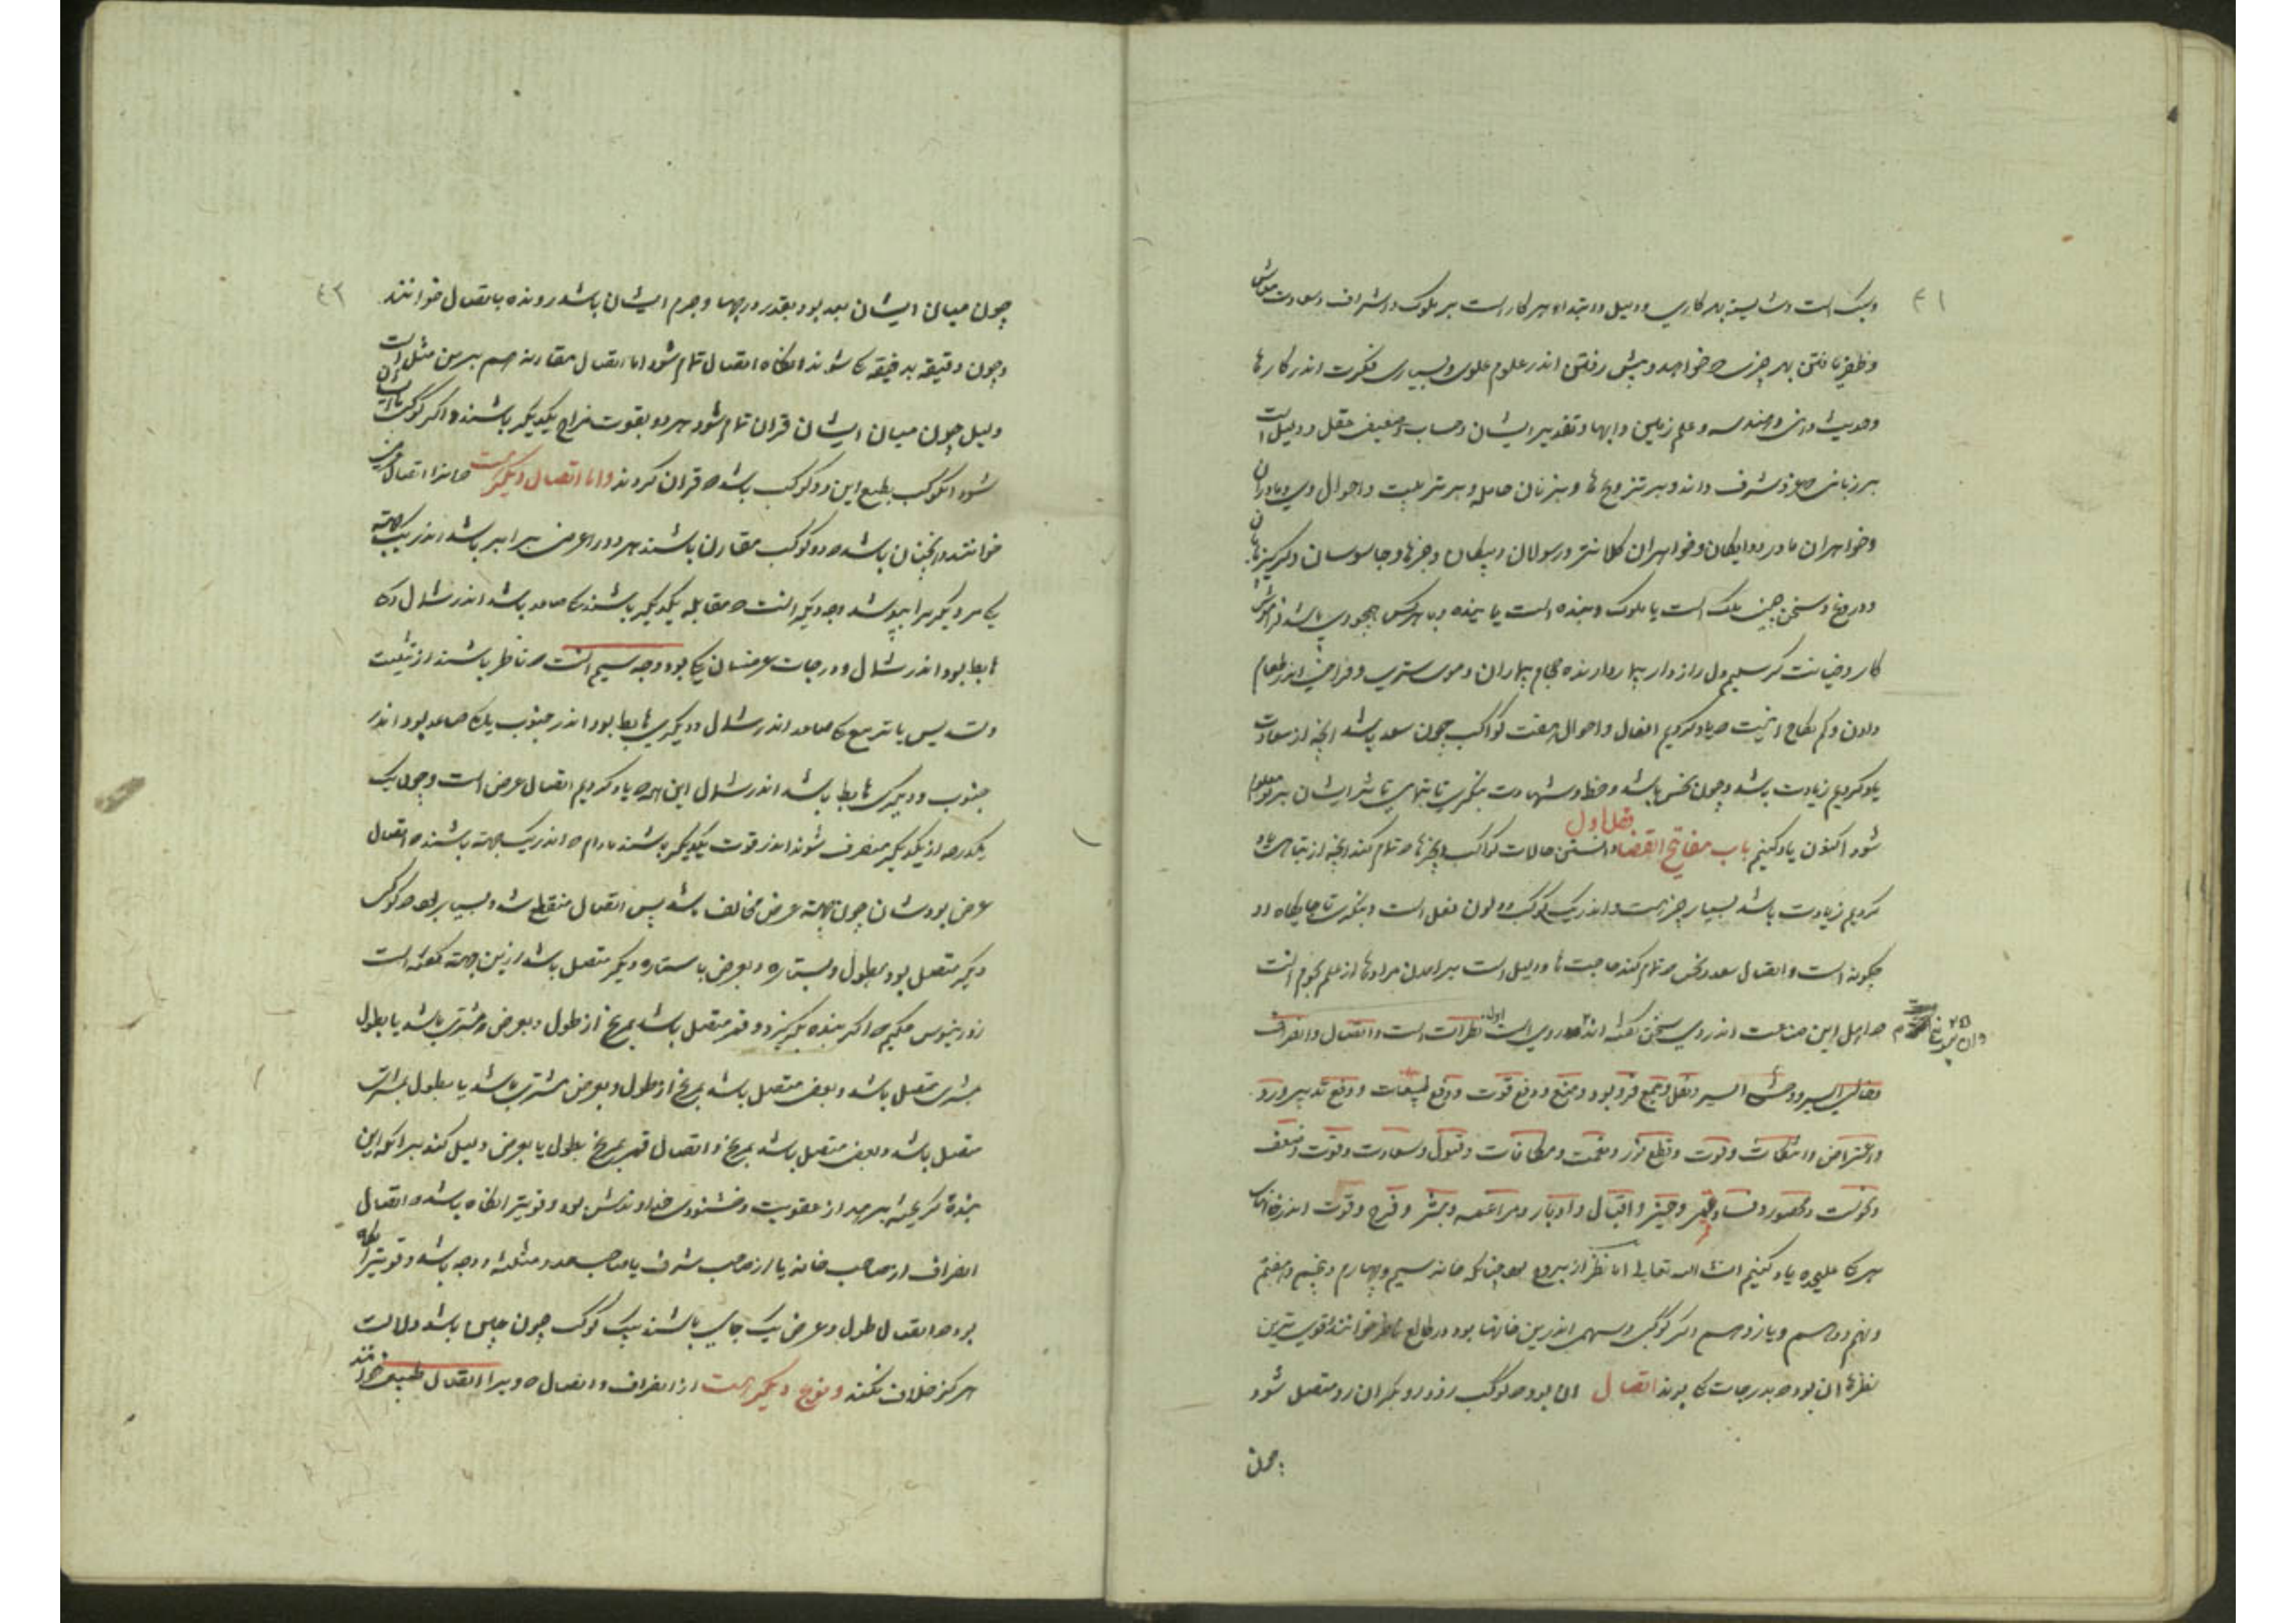 ۴۱
و سبک است و شایسته بهر کاری و دلیل و ابتداء هر کار است بر ملوک و اشراف و سعادت
و ظفر یافتن بهر چیزی که خواهد و پیش رفتن اندر علوم علوی و بسیاری فکرت اندر کارها
و حدیث و هندسه و علم زمین و ابها و تقدیر ایشان و حساب و ضعیف عقل و دلیل است
بر زنانی که عز و شرف دارند و بر تزویجها و بر زنان حامله و بر تربیت و احوال وی و مادران
و خواهران مادر و دایگان و خواهران کلانتر و رسولان و پیکان و خبرها و جاسوسان و گریزندگان
و دروغ و سخن چین ملک است یا ملوک و بنده است یا بنده و با هرکس همچو وی باشد
کار و خیانت گر سلیم دل رازدار و موی ستردن و فراخی اندر طعام
دادن و کم نکاح اینست که یاد کردیم افعال و احوال هفت کواکب چون سعد باشد آنچه از سعادت
یاد کردیم زیادت باشد و چون نحس باشد و حظ و شهادت بنگری تا بتمامی تاثیر ایشان بر تو معلوم
فصل اول
شود اکنون یاد کنیم باب مفاتیح القضا دانستن حالات کواکب و چیزها که تمام کند آنچه از
کردیم زیادت باشد بسیار چیز است و اندر یک کوکب دو لون فعل است و بنگری تا جایگاه او
چگونه است و اتصال سعد و نحس که تمام کند حاجتها و دلیل است بر آمدن مرادها از علم نجوم انست
که اهل این صناعت اندر وی سخن گفته اند اول نظرات است و اتصال و انصراف
و خالی السیر و وحشی السیر و نقل و جمع و رد نور و منع و دفع قوت و دفع طبیعت و دفع تدبیر و رد
و اعتراض و انتکاث و فوت و قطع نور و نعمت و مکافات و قبول و سعادت و قوت و ضعف
و نحوست و محصور و فساد قمر و حیز و اقبال و ادبار و مراغمه و بشر و فرح و قوت اندر خانهاء
هر یکی علیحده یاد کنیم انشاء الله تعالی اما نظر از بروج بود چنانکه خانه سیم و چهارم و پنجم و هفتم
و نهم و دهم و یازدهم هر کوکبی و سهمی اندرین خانها بود در طالع ناظر خوانند قوی ترین
نظرها آن بود که بدرجات یکی بوند اتصال آن بود که کوکب زودرو بگران رو متصل شود
چون
۴۲
چون میان ایشان بعد بود بقدر درجها و جرم ایشان باشد رونده باتصال خوانند
و چون دقیقه بدقیقه یکی شوند انگاه اتصال تمام شود اما اتصال مقارنه هم برین مثل است
دلیل چون میان ایشان قران تمام شود هر دو بقوت مزاج یکدیگر باشند و اگر کوکب
شود آن کوکب بطبع این دو کوکب باشد که قران کردند و اما اتصال دیگر است که انرا اتصال عرض
خوانند و انچنان باشد که دو کوکب مقارن باشند هر دو را عرض برابر باشد اندر یک جهته
یکی مر دیگر را بپوشد وجه دیگر انست که مقابله یکدیگر باشند یکی صاعد باشد اندر شمال و یکی
هابط بود اندر شمال و درجات عرضشان یکی بود وجه سیم انست که ناظر باشند از تثلیث
و تسدیس یا تربیع یکی صاعد اندر شمال و دیگری هابط بود اندر جنوب یا یکی صاعد بود اندر
جنوب و دیگری هابط باشد اندر شمال این همه که یاد کردیم اتصال عرض است و چون یک
یکدرجه از یکدیگر منصرف شوند اندر قوت یکدیگر باشند مادام که اندر یک جهته باشند که اتصال
عرض بودشان چون جهته عرض مخالف باشد پس اتصال منقطع شد و بسیار بود که کوکب
دیگر متصل بود بطول و بستاره و بعرض با ستاره دیگر متصل باشد ازین جهته گفته است
ذورنیوس حکیم که اگر بنده بگریزد و قمر متصل باشد بمریخ از طول و بعرض بمشتری باشد یا بطول
بمشتری متصل باشد و بعرض متصل باشد بمریخ از طول و بعرض بمشتری باشد یا بطول بمشتری
متصل باشد و بعرض متصل باشد بمریخ و اتصال قمر بمریخ بطول یا بعرض دلیل کند بر آنکه این
بنده گریخته برهد از عقوبت و خشنودی خداوندش بود و قویتر انگاه باشد که اتصال
انصراف از صاحب خانه یا از صاحب شرف یا صاحب حد و مثلثه و وجه باشد و قویتر انکه
بود که اتصال طول و عرض یک جای باشند بیک کوکب چون چنین باشد دلالت
هرگز خلاف نکند و نوع دیگر است از انصراف و اتصال که ویرا اتصال طبیعی خوانند